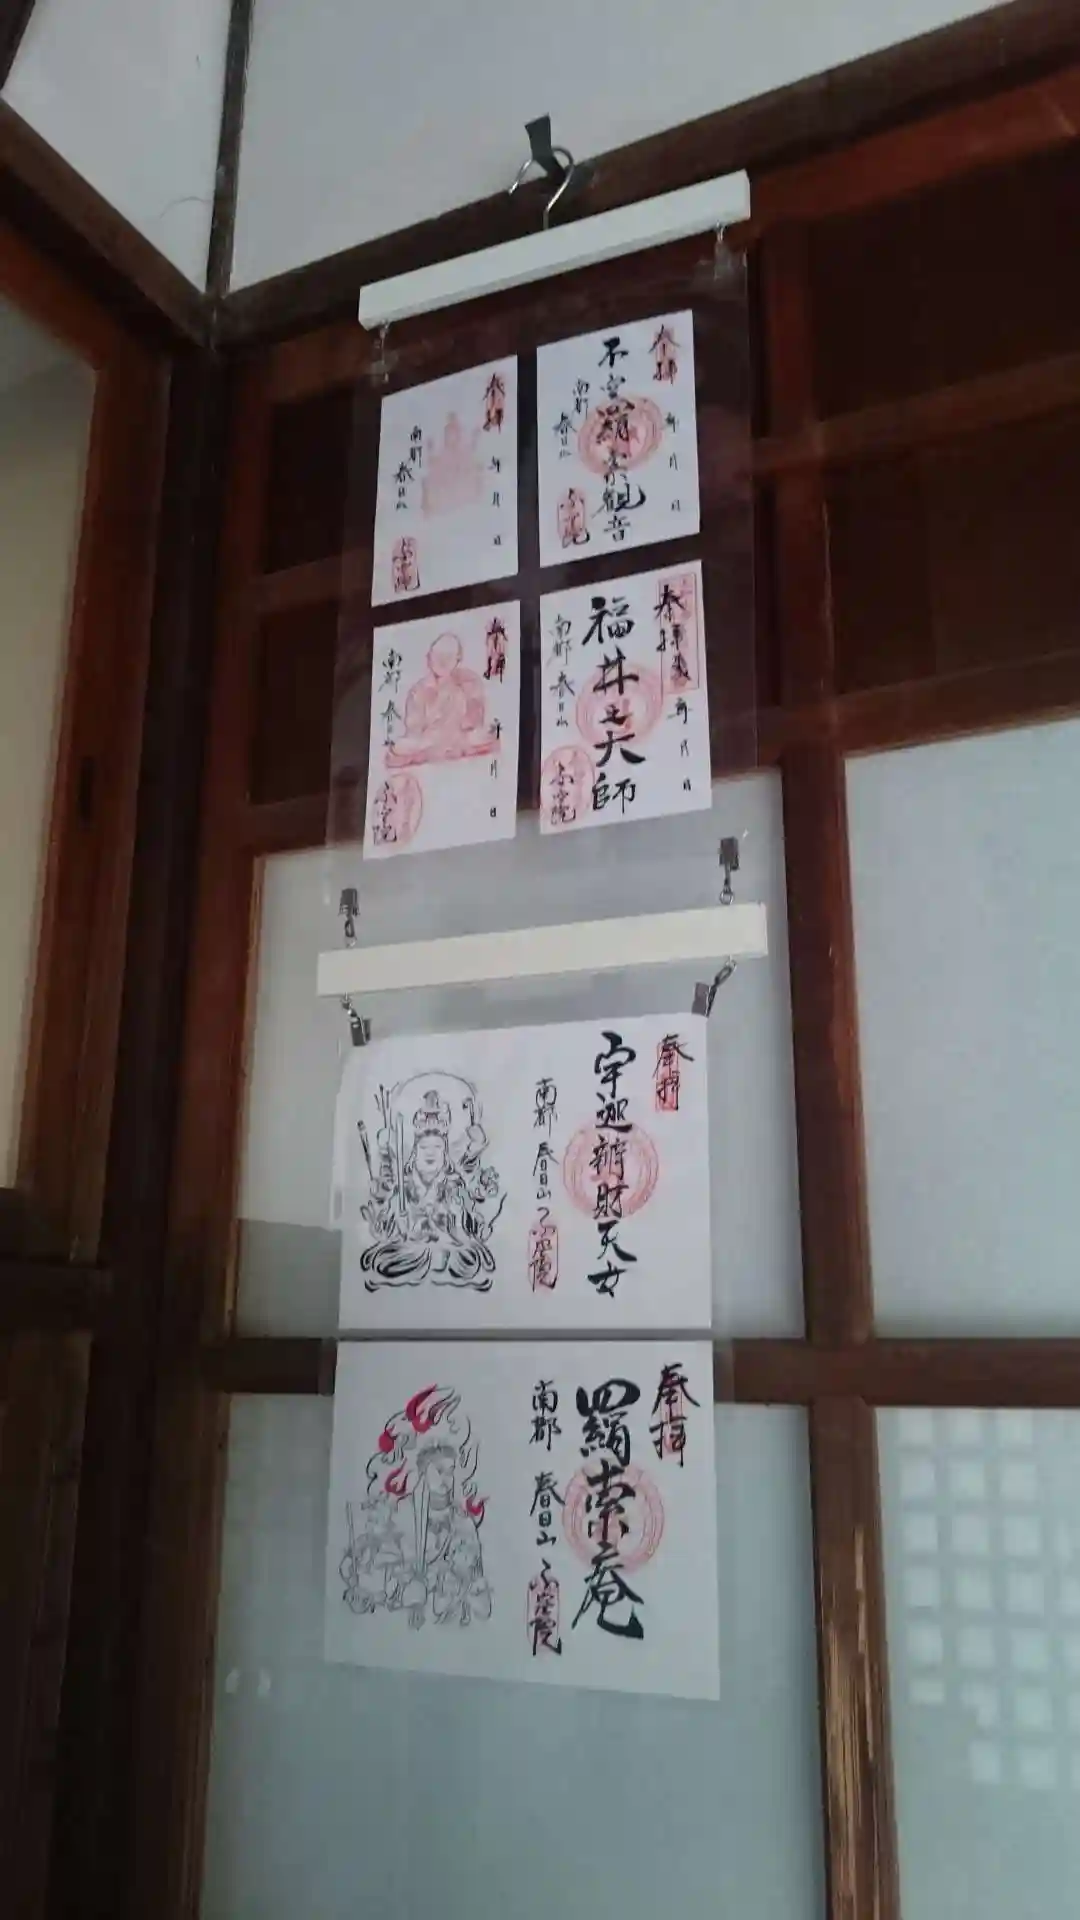 奉拝
年 月 日
不空羂索観音
南都 春日山
不空院
奉拝
年 月 日
南都 春日山
不空院
奉拝
年 月 日
福井之大師
南都 春日山
不空院
奉拝
年 月 日
南都 春日山
不空院
奉拝
宇迦辯財天女
南都 春日山 不空院
奉拝
四羂索庵
南都 春日山 不空院